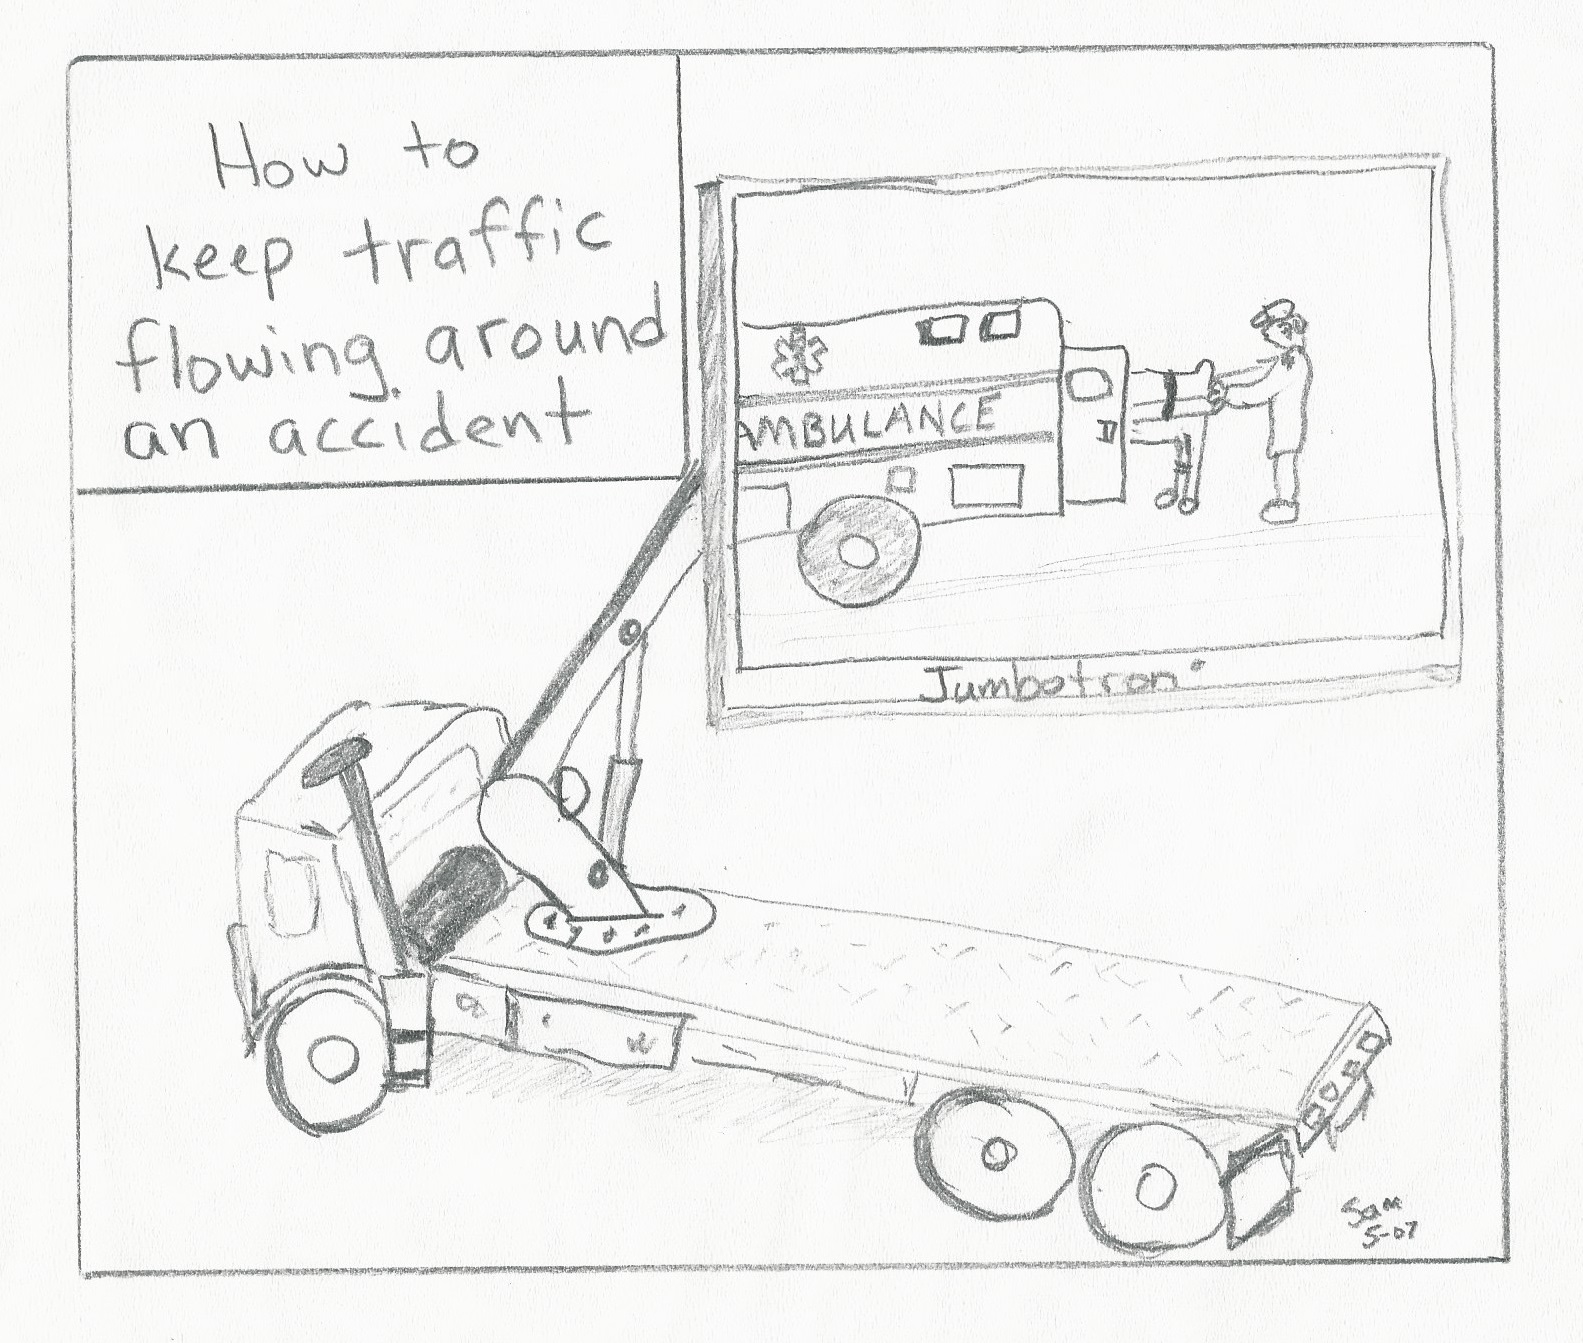 How to
keep traffic
flowing around
an accident
AMBULANCE
Jumbotron
Sam
5-07